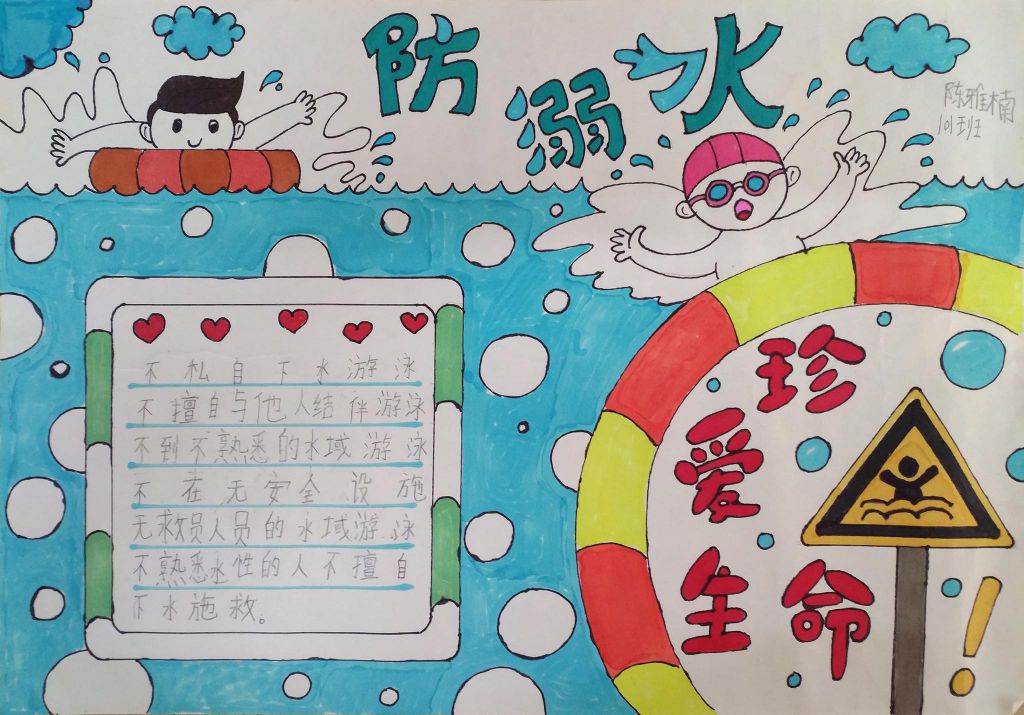 防溺水
陈雅楠
101班
不私自下水游泳
不擅自与他人结伴游泳
不到不熟悉的水域游泳
不在无安全设施
无救员人员的水域游泳
不熟悉水性的人不擅自
下水施救。
珍
爱
生命!